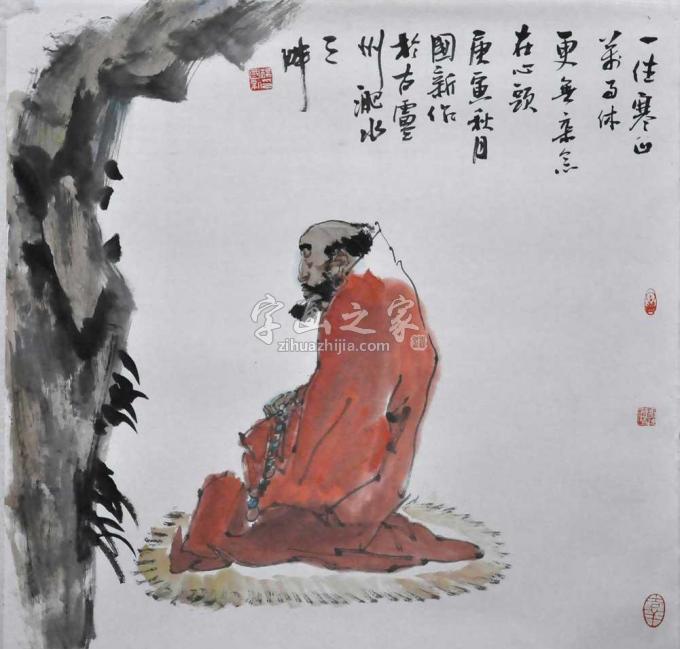 一住寒山
萬事休
更無雜念
在心頭
庚寅秋月
國新作
於古廬
州淝水
之
畔
字画之家
zihuazhijia.com